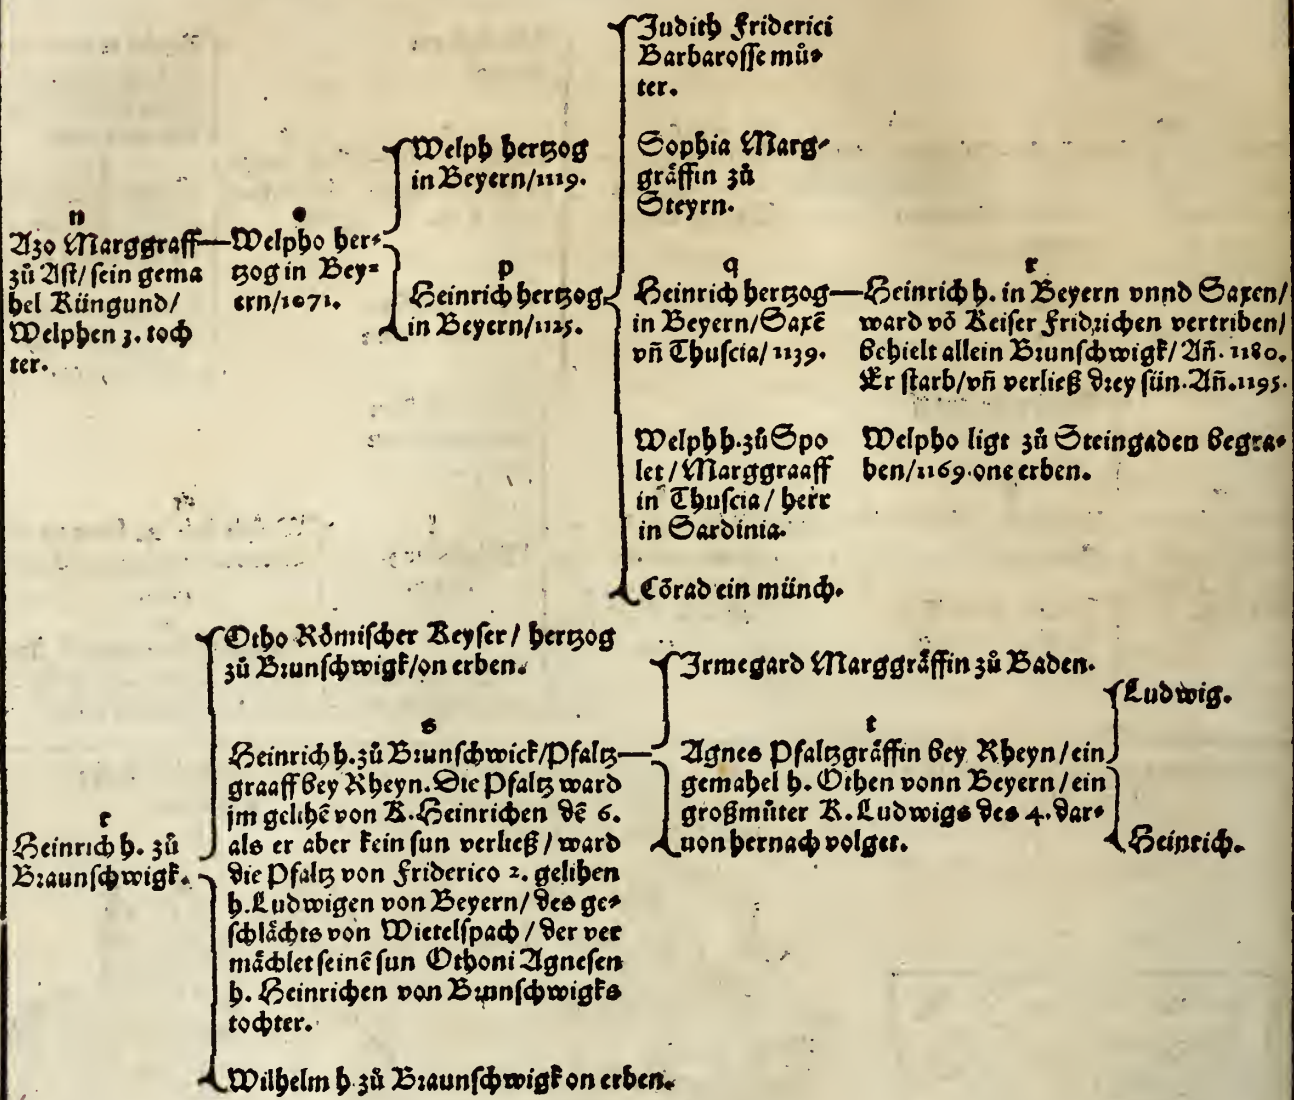 n
Azo Marggraff
zů Ast/ sein gema
hel Küngund/
Welphen 3. toch
ter.
o
Welpho her⸗
tzog in Bey⸗
ern/1071.
Welph hertzog
in Beyern/1119.
p
Heinrich hertzog
in Beyern/1125.
Judith Friderici
Barbarosse můͦ⸗
ter.
Sophia Marg⸗
gräffin zů
Steyrn.
q
Heinrich hertzog
in Beyern/Saxē
vñ Thuscia/1139.
Welph h. zů Spo
let/Marggraaff
in Thuscia/ herr
in Sardinia.
Cōrad ein münch.
r
Heinrich h. in Beyern vnnd Saxen/
ward vō Keiser Fridrichen vertriben/
behielt allein Brunschwigk/Añ. 1180.
Er starb/vñ verließ drey sün. Añ. 1195.
Welpho ligt zů Steingaden begra⸗
ben/1169. one erben.
r
Heinrich h. zů
Braunschwigk.
Otho Römischer Keyser/ hertzog
zů Brunschwigk/on erben.
s
Heinrich h. zů Brunschwick/Pfaltz
graaff bey Rheyn. Die Pfaltz ward
jm gelihē von K. Heinrichen dē 6.
als er aber kein sun verließ/ ward
die Pfaltz von Friderico 2. gelihen
h. Ludwigen von Beyern/ des ge⸗
schlächts von Wietelspach/ der ver
mächlet seinē sun Othoni Agnesen
h. Heinrichen von Brunschwigks
tochter.
Wilhelm h. zů Braunschwigk on erben.
Irmegard Marggräffin zů Baden.
t
Agnes Pfaltzgräffin bey Rheyn/ein
gemahel h. Othen vonn Beyern/ein
großmůter K. Ludwigs des 4. dar⸗
uon hernach volget.
Ludwig.
Heinrich.